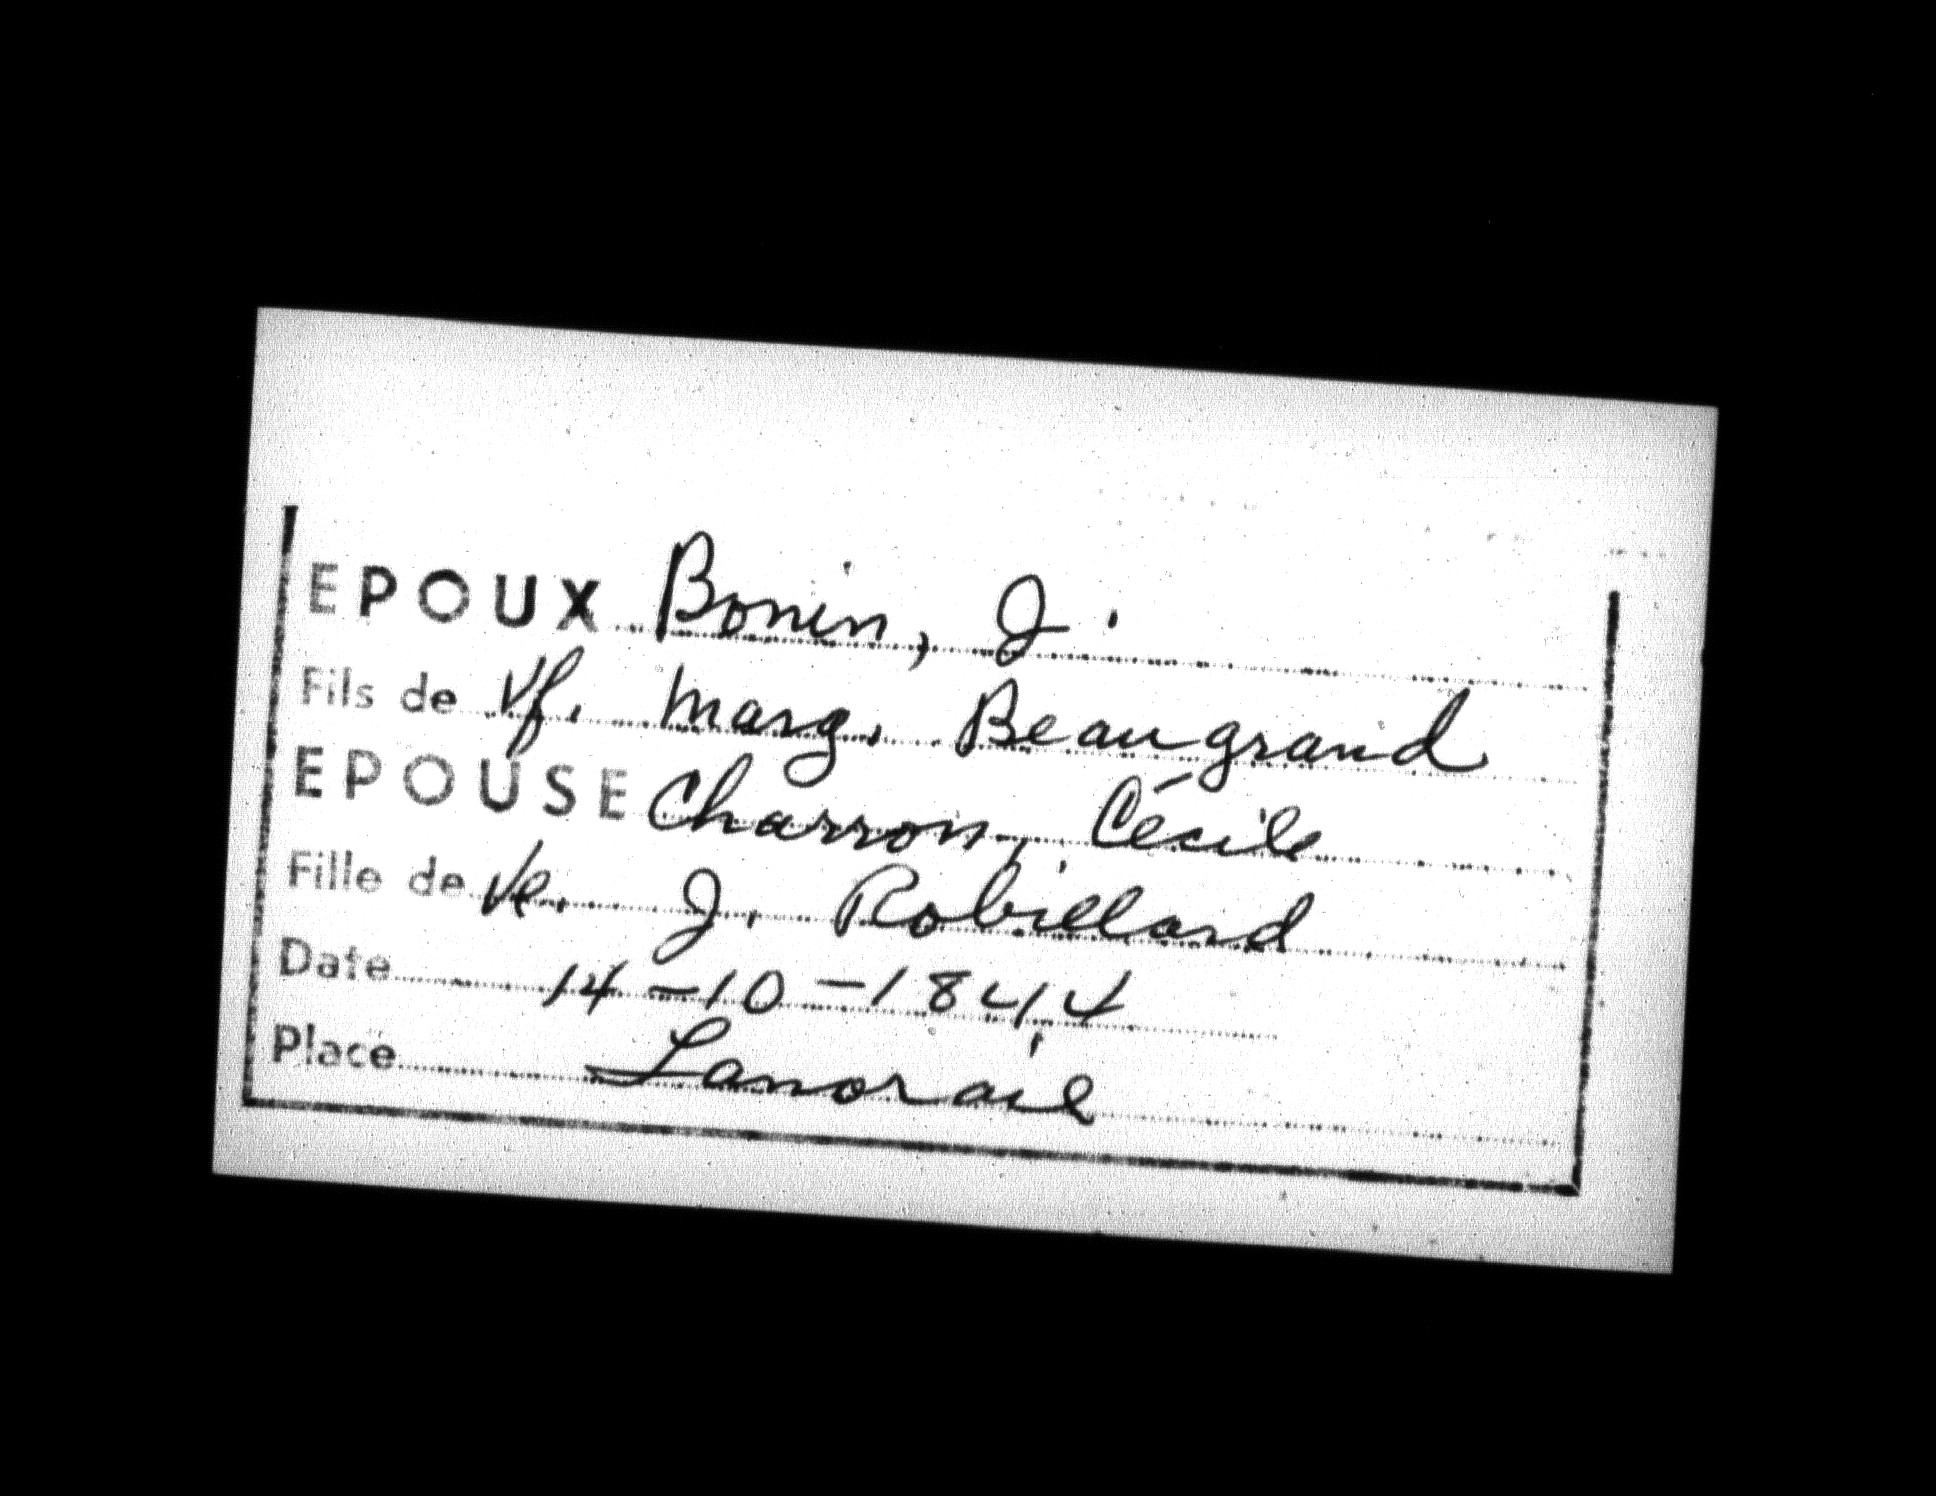 EPOUX Bonin, J.
Fils de Vf. Marg. Beaugrand
EPOUSE Charron, Cécile
Fille de Ve. J. Robillard
Date 14-10-1844
Place Lanoraie